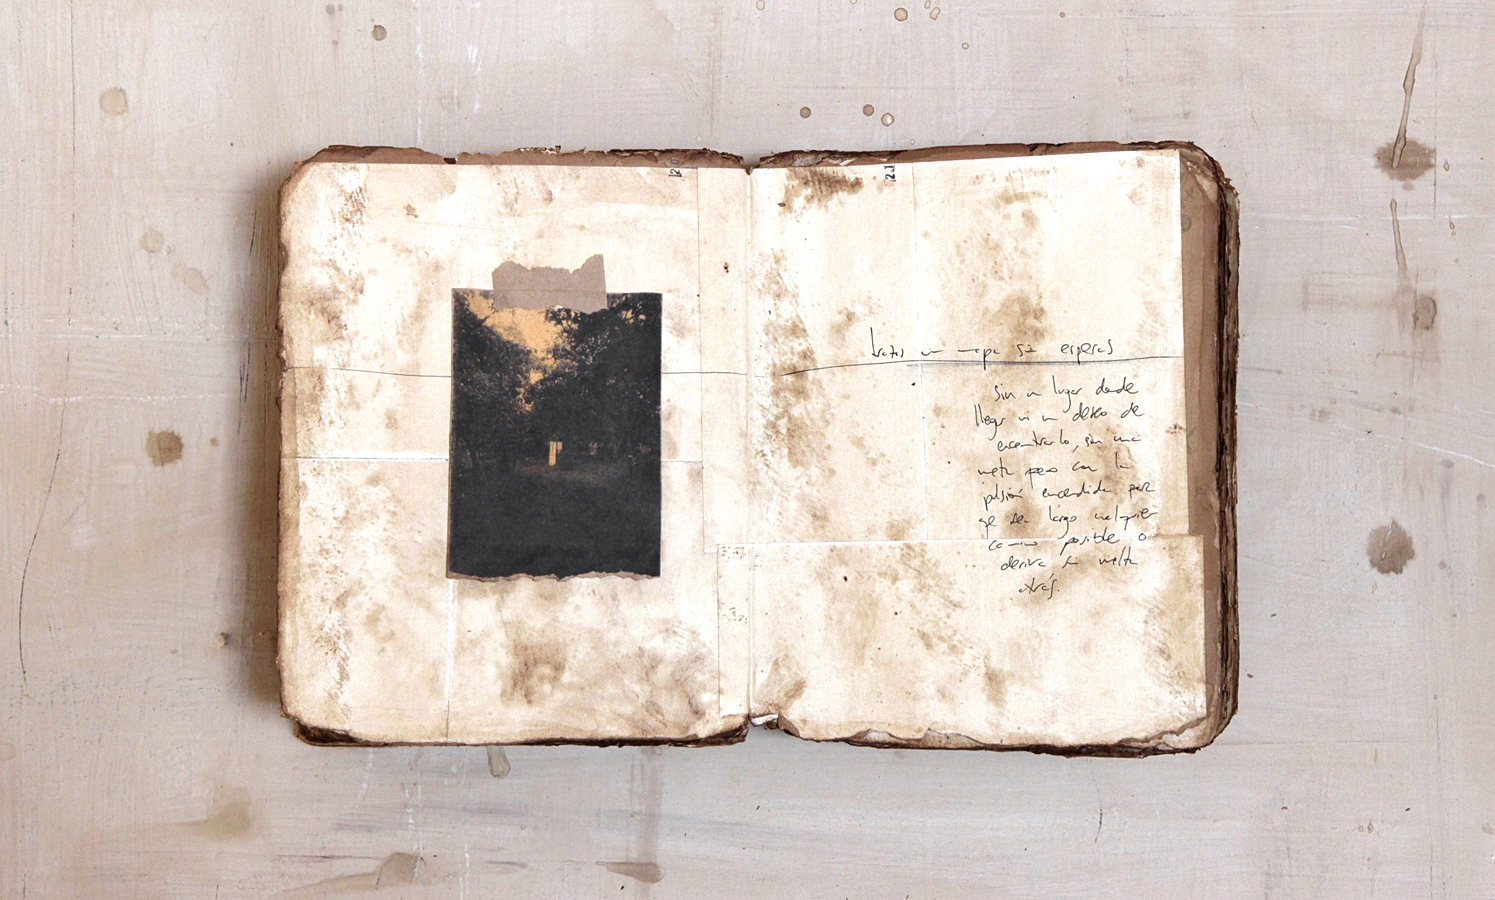 trazas un mapa sin esperas
sin un lugar donde
llegar ni un deseo de
encontrarlo, sin una
meta pero con la
pulsión encendida por
que sea largo cualquier
camino posible o
deriva sin vuelta
atrás.